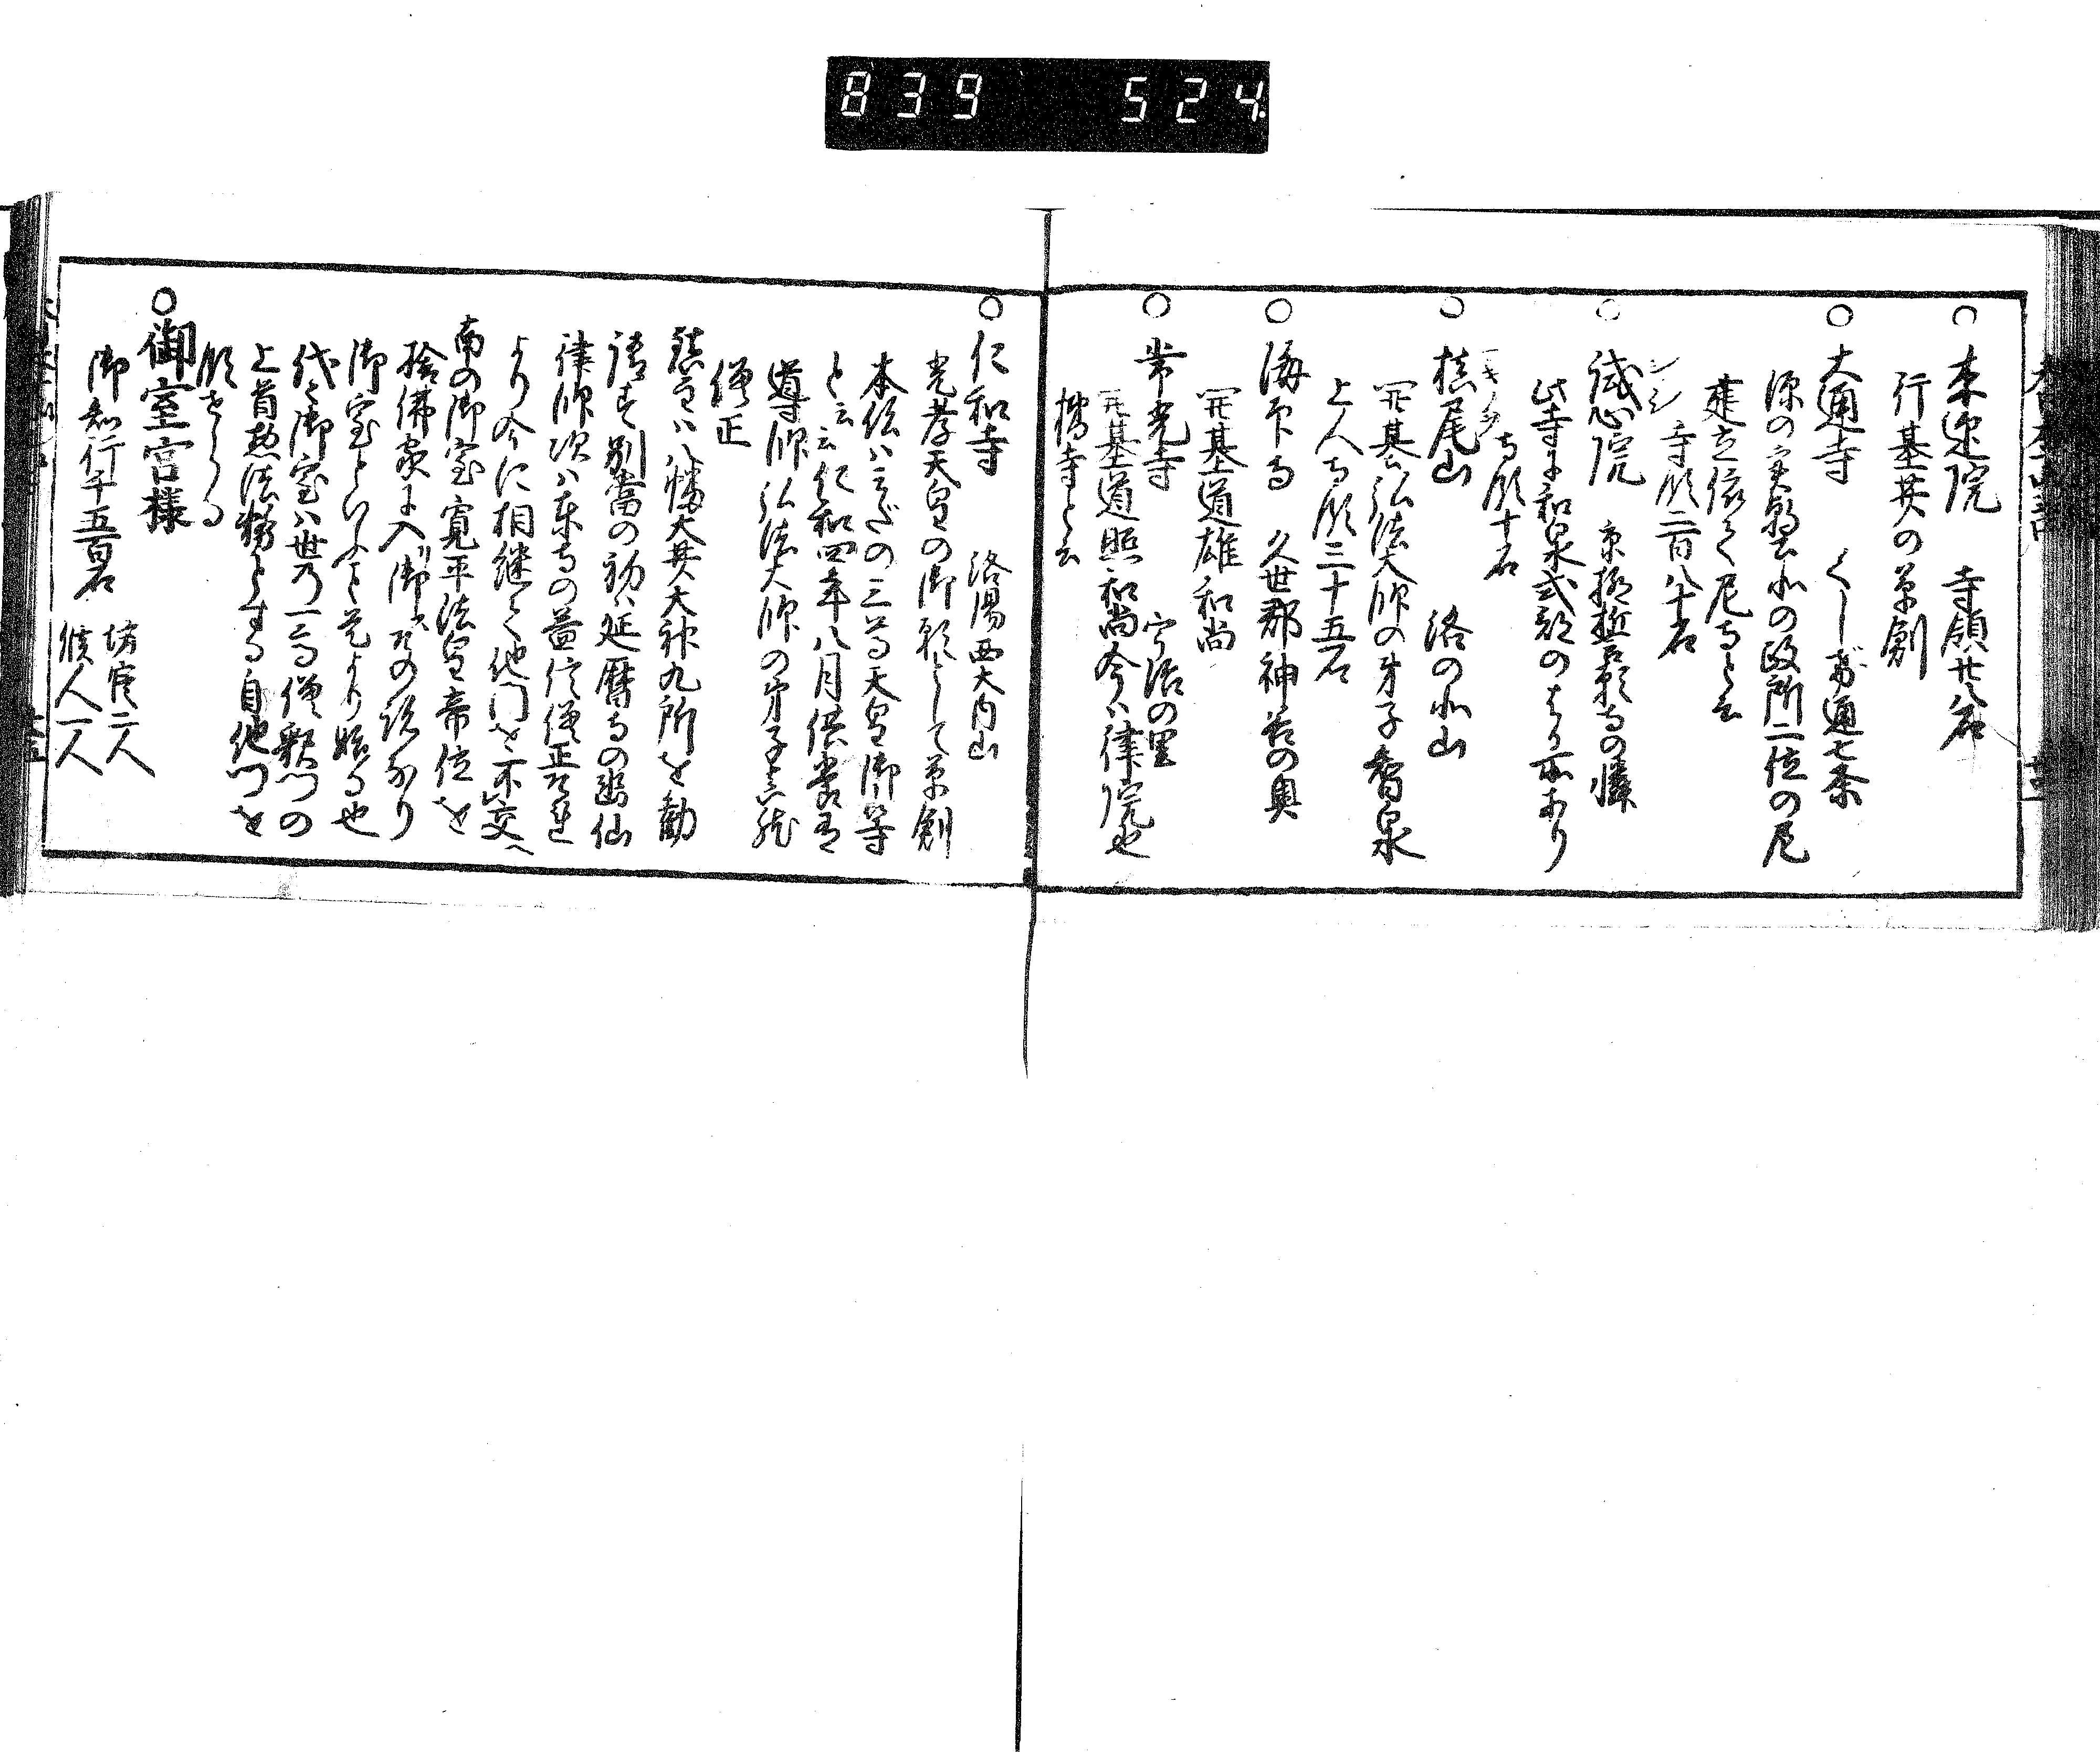 839 524
○来迎院 寺領廿八石
行基井の草創
○大通寺 くしげ通七条
源の実朝公北の政所二位の尼
建立依て尼寺と云
寺領二百八十石
○誠心院 京極誓願寺の隣
此寺に和泉式部のはか所あり
寺領十石
○槙尾山 洛の北山
マキノヲ
開基弘法大師の弟子智泉
上人寺領三十五石
○海印寺 久世郡神谷の奥
開基道雄和尚
○常光寺 宇治の里
開基道照和尚今ハ律院也
橋寺と云
○仁和寺 洛陽西大内山
光孝天皇の御願として草創
本仏ハみだの三尊天皇御等
と云云仁和四年八月供養有
導師弘法大師の弟子真然
僧正
鎮守ハ八幡大井大神九所を勧
請す別当の初ハ延暦寺の幽仙
律師次ハ東寺の益信僧正是
より今に相継て他門を不交ヘ
南の御室寛平法皇帝位を
捨佛家に入御
御室といふ事是より始る也
代々御室ハ世乃一の尊僧釈門の
上首惣法務とする自他門を
領せらる
○御室宮様
御知行千五百石 坊官二人
候人一人